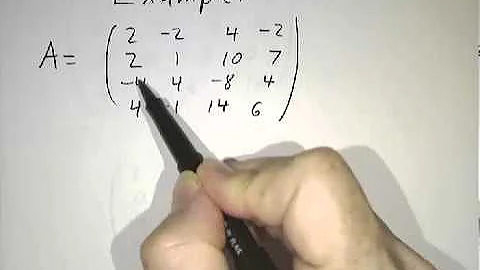 Example
A = ( 2 -2 4 -2
2 1 10 7
-4 4 -8 4
4 -1 14 6 )